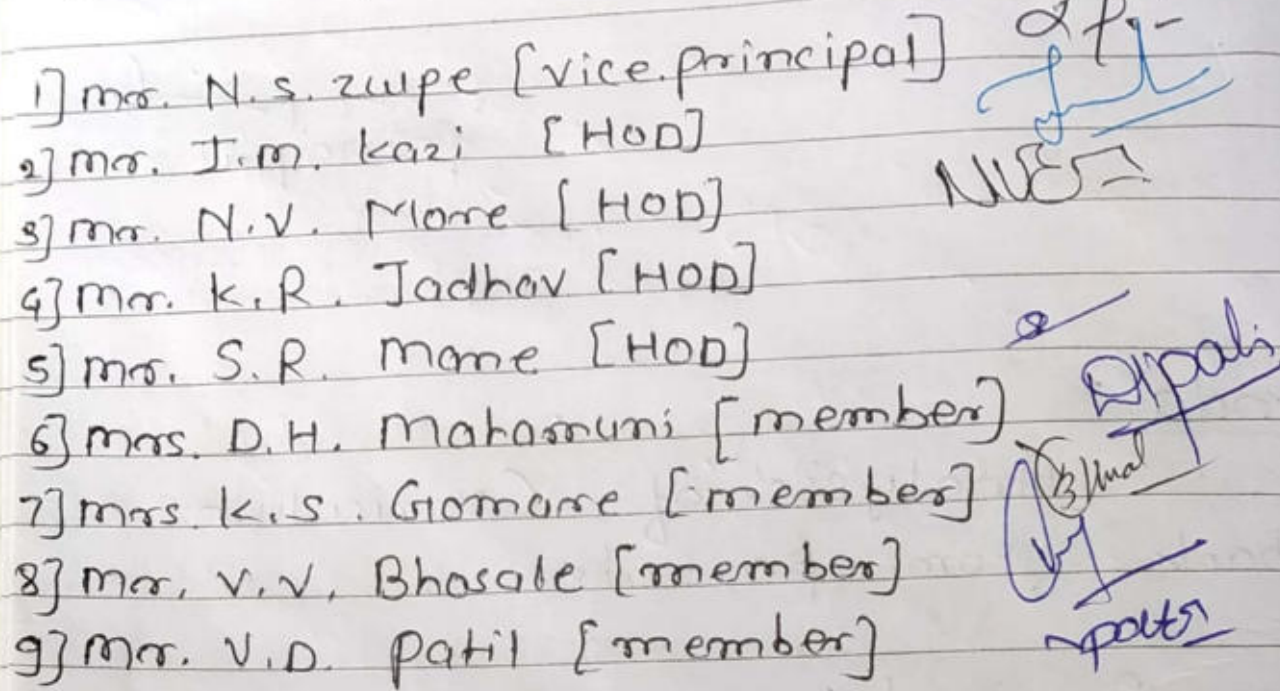 1] Mr. N.S. Zulpe [Vice.principal]
2] Mr. I.M. Kazi [HOD]
3] Mr. N.V. More [HOD]
4] Mr. K.R. Jadhav [HOD]
5] Mr. S.R. Mane [HOD]
Dipali
6] Mrs. D.H. Mahamuni [member]
7] Mrs. K.S. Gomare [member]
8] Mr. V.V. Bhosale [member]
9] Mr. V.D. Patil [member]